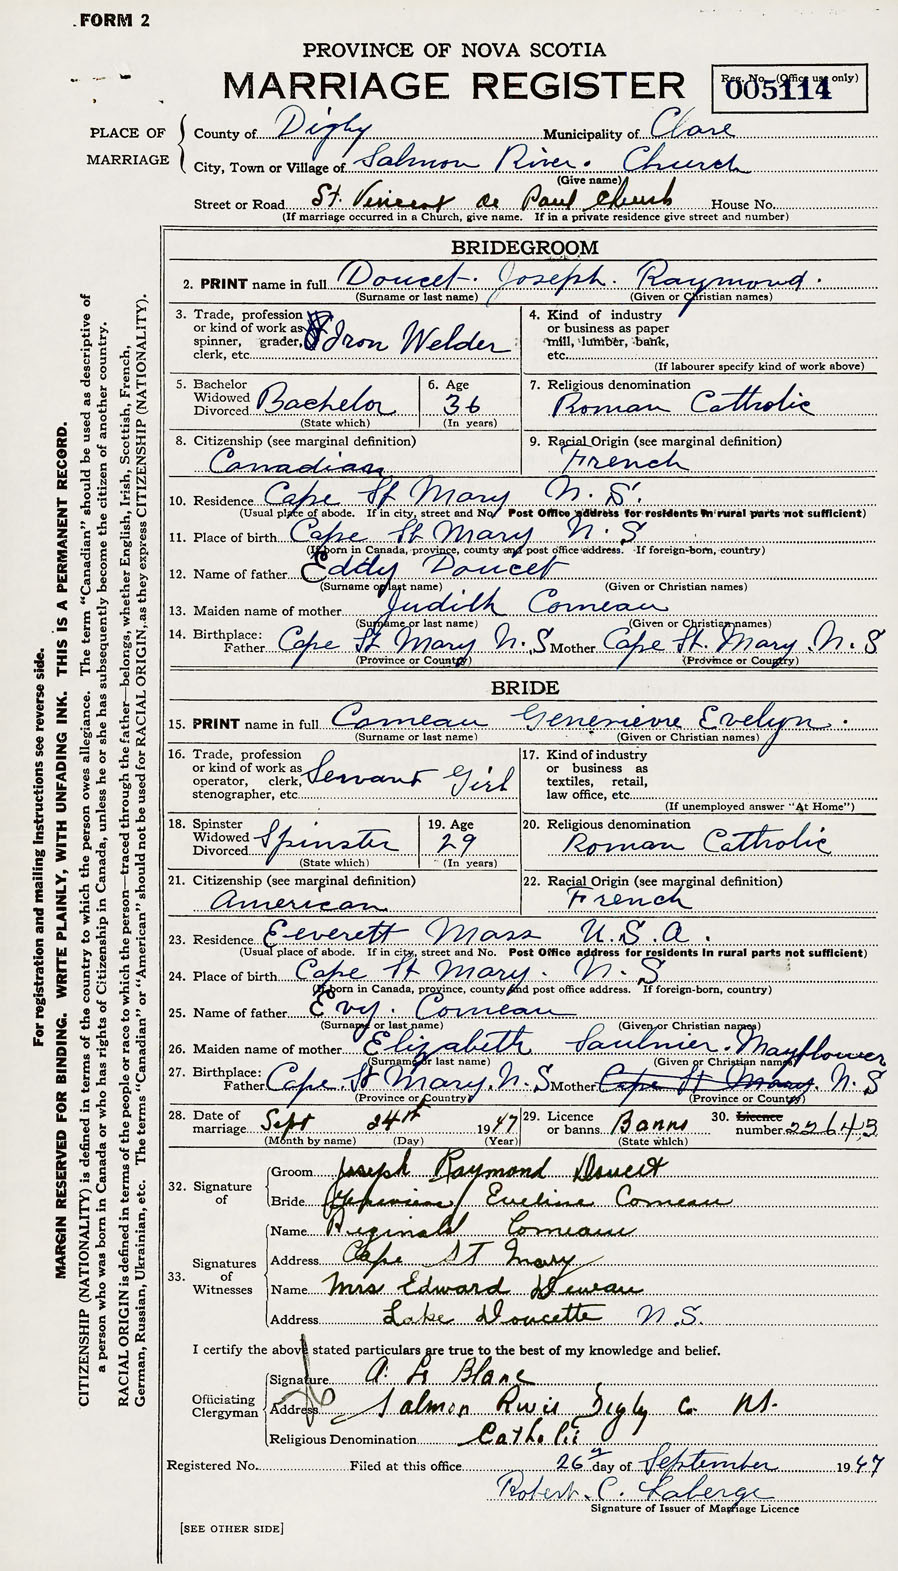 FORM 2
PROVINCE OF NOVA SCOTIA
MARRIAGE REGISTER
Reg. No. (Office use only)
005114
PLACE OF MARRIAGE
County of Digby Municipality of Clare
City, Town or Village of Salmon River. Church
(Give name)
Street or Road St. Vincent de Paul Church House No.
(If marriage occurred in a Church, give name. If in a private residence give street and number)
BRIDEGROOM
2. PRINT name in full Doucet. Joseph. Raymond.
(Surname or last name) (Given or Christian names)
3. Trade, profession or kind of work as spinner, grader, clerk, etc. Iron Welder
4. Kind of industry or business as paper mill, lumber, bank, etc.
(If labourer specify kind of work above)
5. Bachelor Widowed Divorced Bachelor
(State which)
6. Age 36
(In years)
7. Religious denomination Roman Catholic
8. Citizenship (see marginal definition) Canadian
9. Racial Origin (see marginal definition) French
10. Residence Cape St Mary N. S.
(Usual place of abode. If in city, street and No. Post Office address for residents in rural parts not sufficient)
11. Place of birth Cape St Mary N. S
(If born in Canada, province, county and post office address. If foreign-born, country)
12. Name of father Eddy Doucet
(Surname or last name) (Given or Christian names)
13. Maiden name of mother Judith Comeau
(Surname or last name) (Given or Christian names)
14. Birthplace: Father Cape St Mary N. S Mother Cape St. Mary. N. S
(Province or Country) (Province or Country)
BRIDE
15. PRINT name in full Comeau Genevieve Evelyn.
(Surname or last name) (Given or Christian names)
16. Trade, profession or kind of work as operator, clerk, stenographer, etc. Servant Girl
17. Kind of industry or business as textiles, retail, law office, etc.
(If unemployed answer "At Home")
18. Spinster Widowed Divorced Spinster
(State which)
19. Age 29
(In years)
20. Religious denomination Roman Catholic
21. Citizenship (see marginal definition) American
22. Racial Origin (see marginal definition) French
23. Residence Eeverett Mass U. S. A.
(Usual place of abode. If in city, street and No. Post Office address for residents in rural parts not sufficient)
24. Place of birth Cape St Mary. N. S
(If born in Canada, province, county and post office address. If foreign-born, country)
25. Name of father Evy. Comeau
(Surname or last name) (Given or Christian names)
26. Maiden name of mother Elizabeth Saulnier. Mayflower
(Surname or last name) (Given or Christian names)
27. Birthplace: Father Cape St Mary N. S Mother Cape St Mary. N. S
(Province or Country) (Province or Country)
28. Date of marriage Sept 24th 1947
(Month by name) (Day) (Year)
29. Licence or banns Banns
(State which)
30. Licence number 22643
32. Signature of
Groom Joseph Raymond Doucet
Bride Eveline Comeau
33. Signatures of Witnesses
Name Reginald Comeau
Address Cape ST Mary
Name Mrs Edward
Address Lake Doucette N.S.
I certify the above stated particulars are true to the best of my knowledge and belief.
Officiating Clergyman
Signature A. Le Blanc
Address Salmon River Digby Co NS.
Religious Denomination Catholic
Registered No. Filed at this office 26 day of September 1947
Robert. C. Laberge
Signature of Issuer of Marriage Licence
[SEE OTHER SIDE]
For registration and mailing instructions see reverse side.
MARGIN RESERVED FOR BINDING. WRITE PLAINLY, WITH UNFADING INK. THIS IS A PERMANENT RECORD.
CITIZENSHIP (NATIONALITY) is defined in terms of the country to which the person owes allegiance. The term "Canadian" should be used as descriptive of
a person who was born in Canada or who has rights of Citizenship in Canada, unless he or she has subsequently become the citizen of another country.
RACIAL ORIGIN is defined in terms of the people or race to which the person—traced through the father—belongs, whether English, Irish, Scottish, French,
German, Russian, Ukrainian, etc. The terms "Canadian" or "American" should not be used for RACIAL ORIGIN, as they express CITIZENSHIP (NATIONALITY).